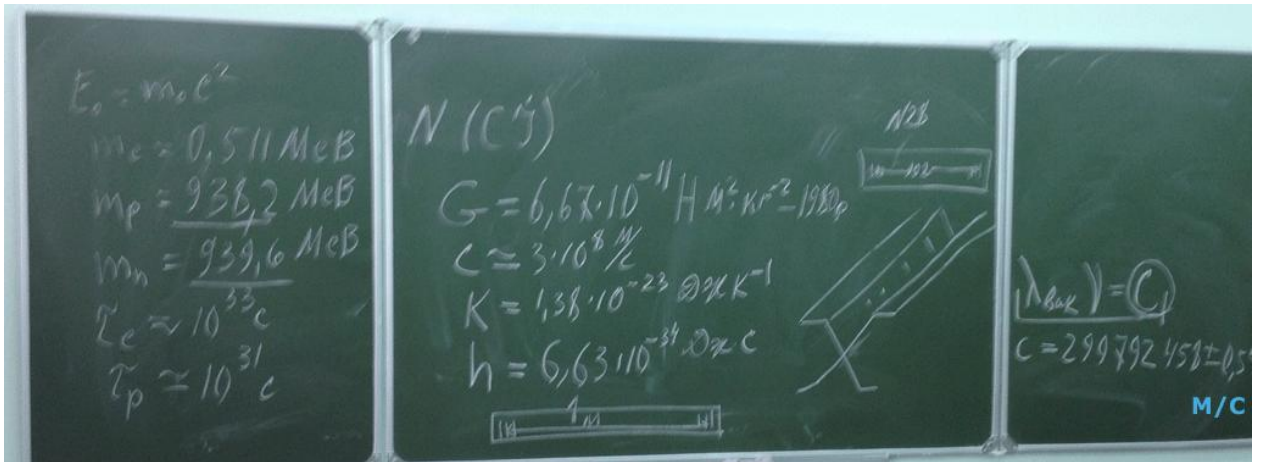 E₀ = m₀c²
mₑ = 0,511 МеВ
mₚ = 938,2 МеВ
mₙ = 939,6 МеВ
τₑ ≈ 10³³ c
τₚ ≃ 10³¹ c
N (СИ)
G = 6,67·10⁻¹¹ Н м²·кг⁻² – 1980г
c ≃ 3·10⁸ м/с
K = 1,38·10⁻²³ Дж К⁻¹
h = 6,63·10⁻³⁴ Дж·с
1 м
N28
102
λвак ν = c
c = 299792458 ± 0,5
М/С